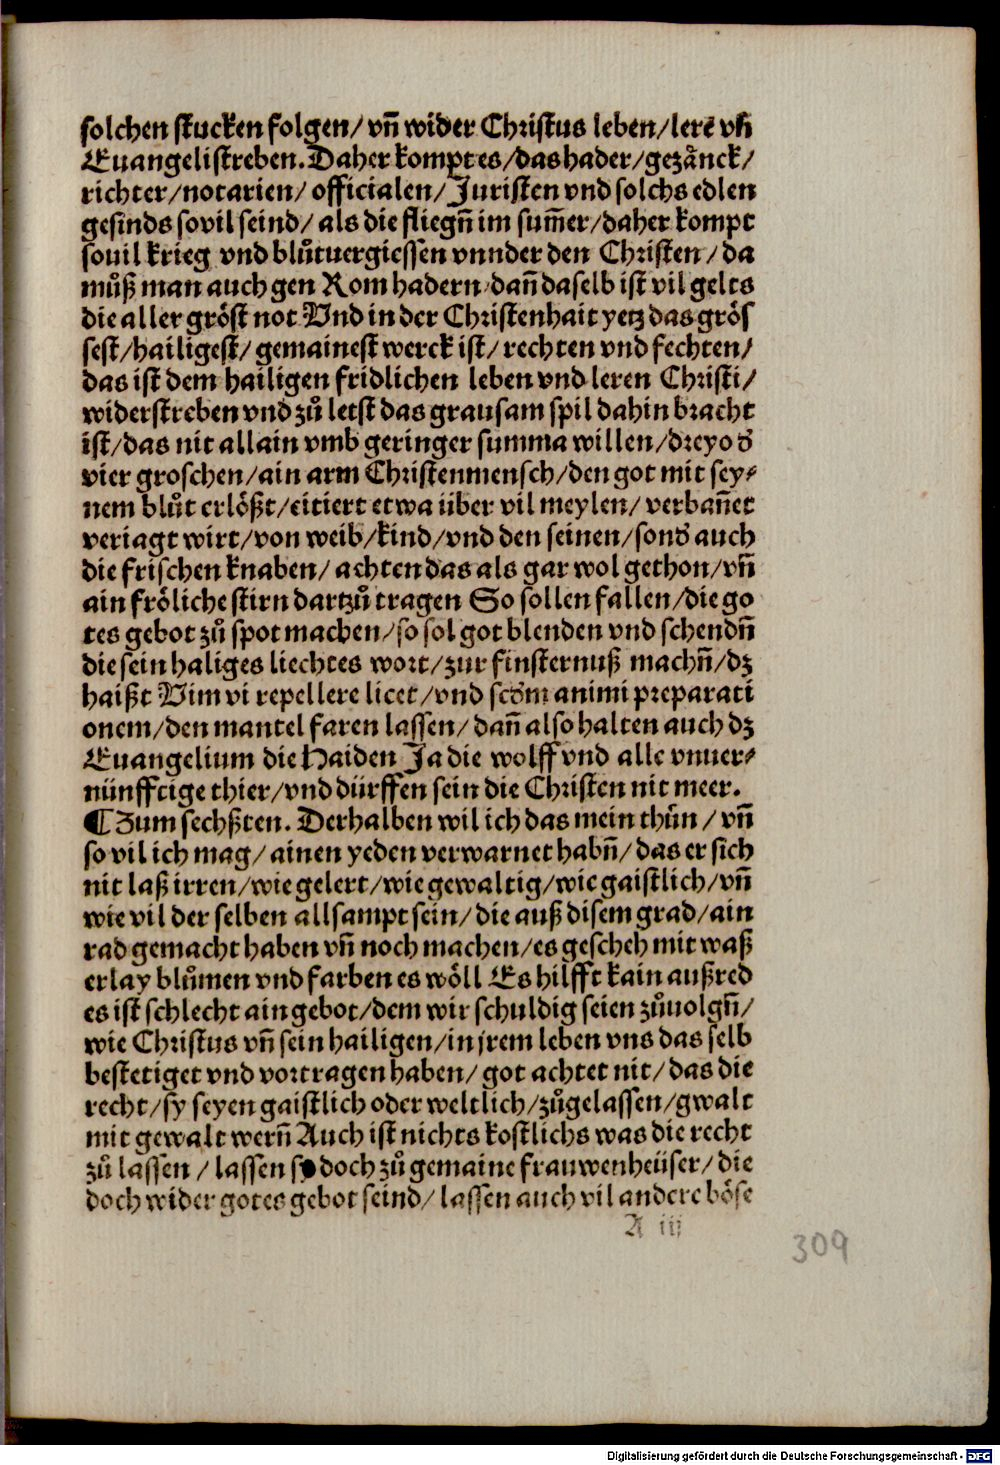 solchen stucken folgen/ vñ wider Christus leben/lerē vñ
Euangeli streben. Daher kompt es/das hader/gezaͤnck/
richter/notarien/ officialen/Juristen vnd solchs edlen
gesinds so vil seind/ als die fliegñ im sum̃er/daher kompt
souil krieg vnd bluͦtuergiessen vnnder den Christen/ da
muͦß man auch gen Rom hadern dañ daselb ist vil gelts
die aller groͤst not Vnd in der Christenhait yetz das groͤs
sest/hailigest/ gemainest werck ist/ rechten vnd fechten/
das ist dem hailigen fridlichen leben vnd leren Christi/
widerstreben vnd zuͦ letst das grausam spil dahin bracht
ist/das nit allain vmb geringer summa willen/dreyoď
vier groschen/ain arm Christenmensch/den got mit sey⸗
nem bluͦt erloͤßt/citiert etwa über vil meylen/ verbañet
veriagt wirt/von weib/kind/vnd den seinen/sonď auch
die frischen knaben/ achten das als gar wol gethon/vñ
ain froͤliche stirn dartzuͦ tragen So sollen fallen/die go
tes gebot zuͦ spot machen/so sol got blenden vnd schendñ
die sein haliges liechtes wort/zur finsternuß machñ/dz
haißt Vim vi repellere licet/vnd scďm animi preparati
onem/den mantel faren lassen/ dañ also halten auch dz
Euangelium die Haiden Ja die wolff vnd alle vnuer⸗
nünfftige thier/vnd dürffen sein die Christen nit meer.
¶ Zum sechßten. Derhalben wil ich das mein thuͦn/ vñ
so vil ich mag/ ainen yeden verwarnet habñ/das er sich
nit laß irren/wie gelert/wie gewaltig/wie gaistlich/vñ
wie vil der selben allsampt sein/die auß disem grad/ain
rad gemacht haben vñ noch machen/es gescheh mit waß
erlay bluͦmen vnd farben es woͤll Es hilfft kain außred
es ist schlecht ain gebot/dem wir schuldig seien zuͦuolgñ/
wie Christus vñ sein hailigen/in jrem leben vns das selb
bestetiget vnd vortragen haben/ got achtet nit/das die
recht/sy seyen gaistlich oder weltlich/zuͦgelassen/gwalt
mit gewalt werñ Auch ist nichts kostlichs was die recht
zuͦ lassen / lassen sy doch zuͦ gemaine frauwenheüser/die
doch wider gotes gebot seind/ lassen auch vil andere boͤse
A iij
309
Digitalisierung gefördert durch die Deutsche Forschungsgemeinschaft - DFG